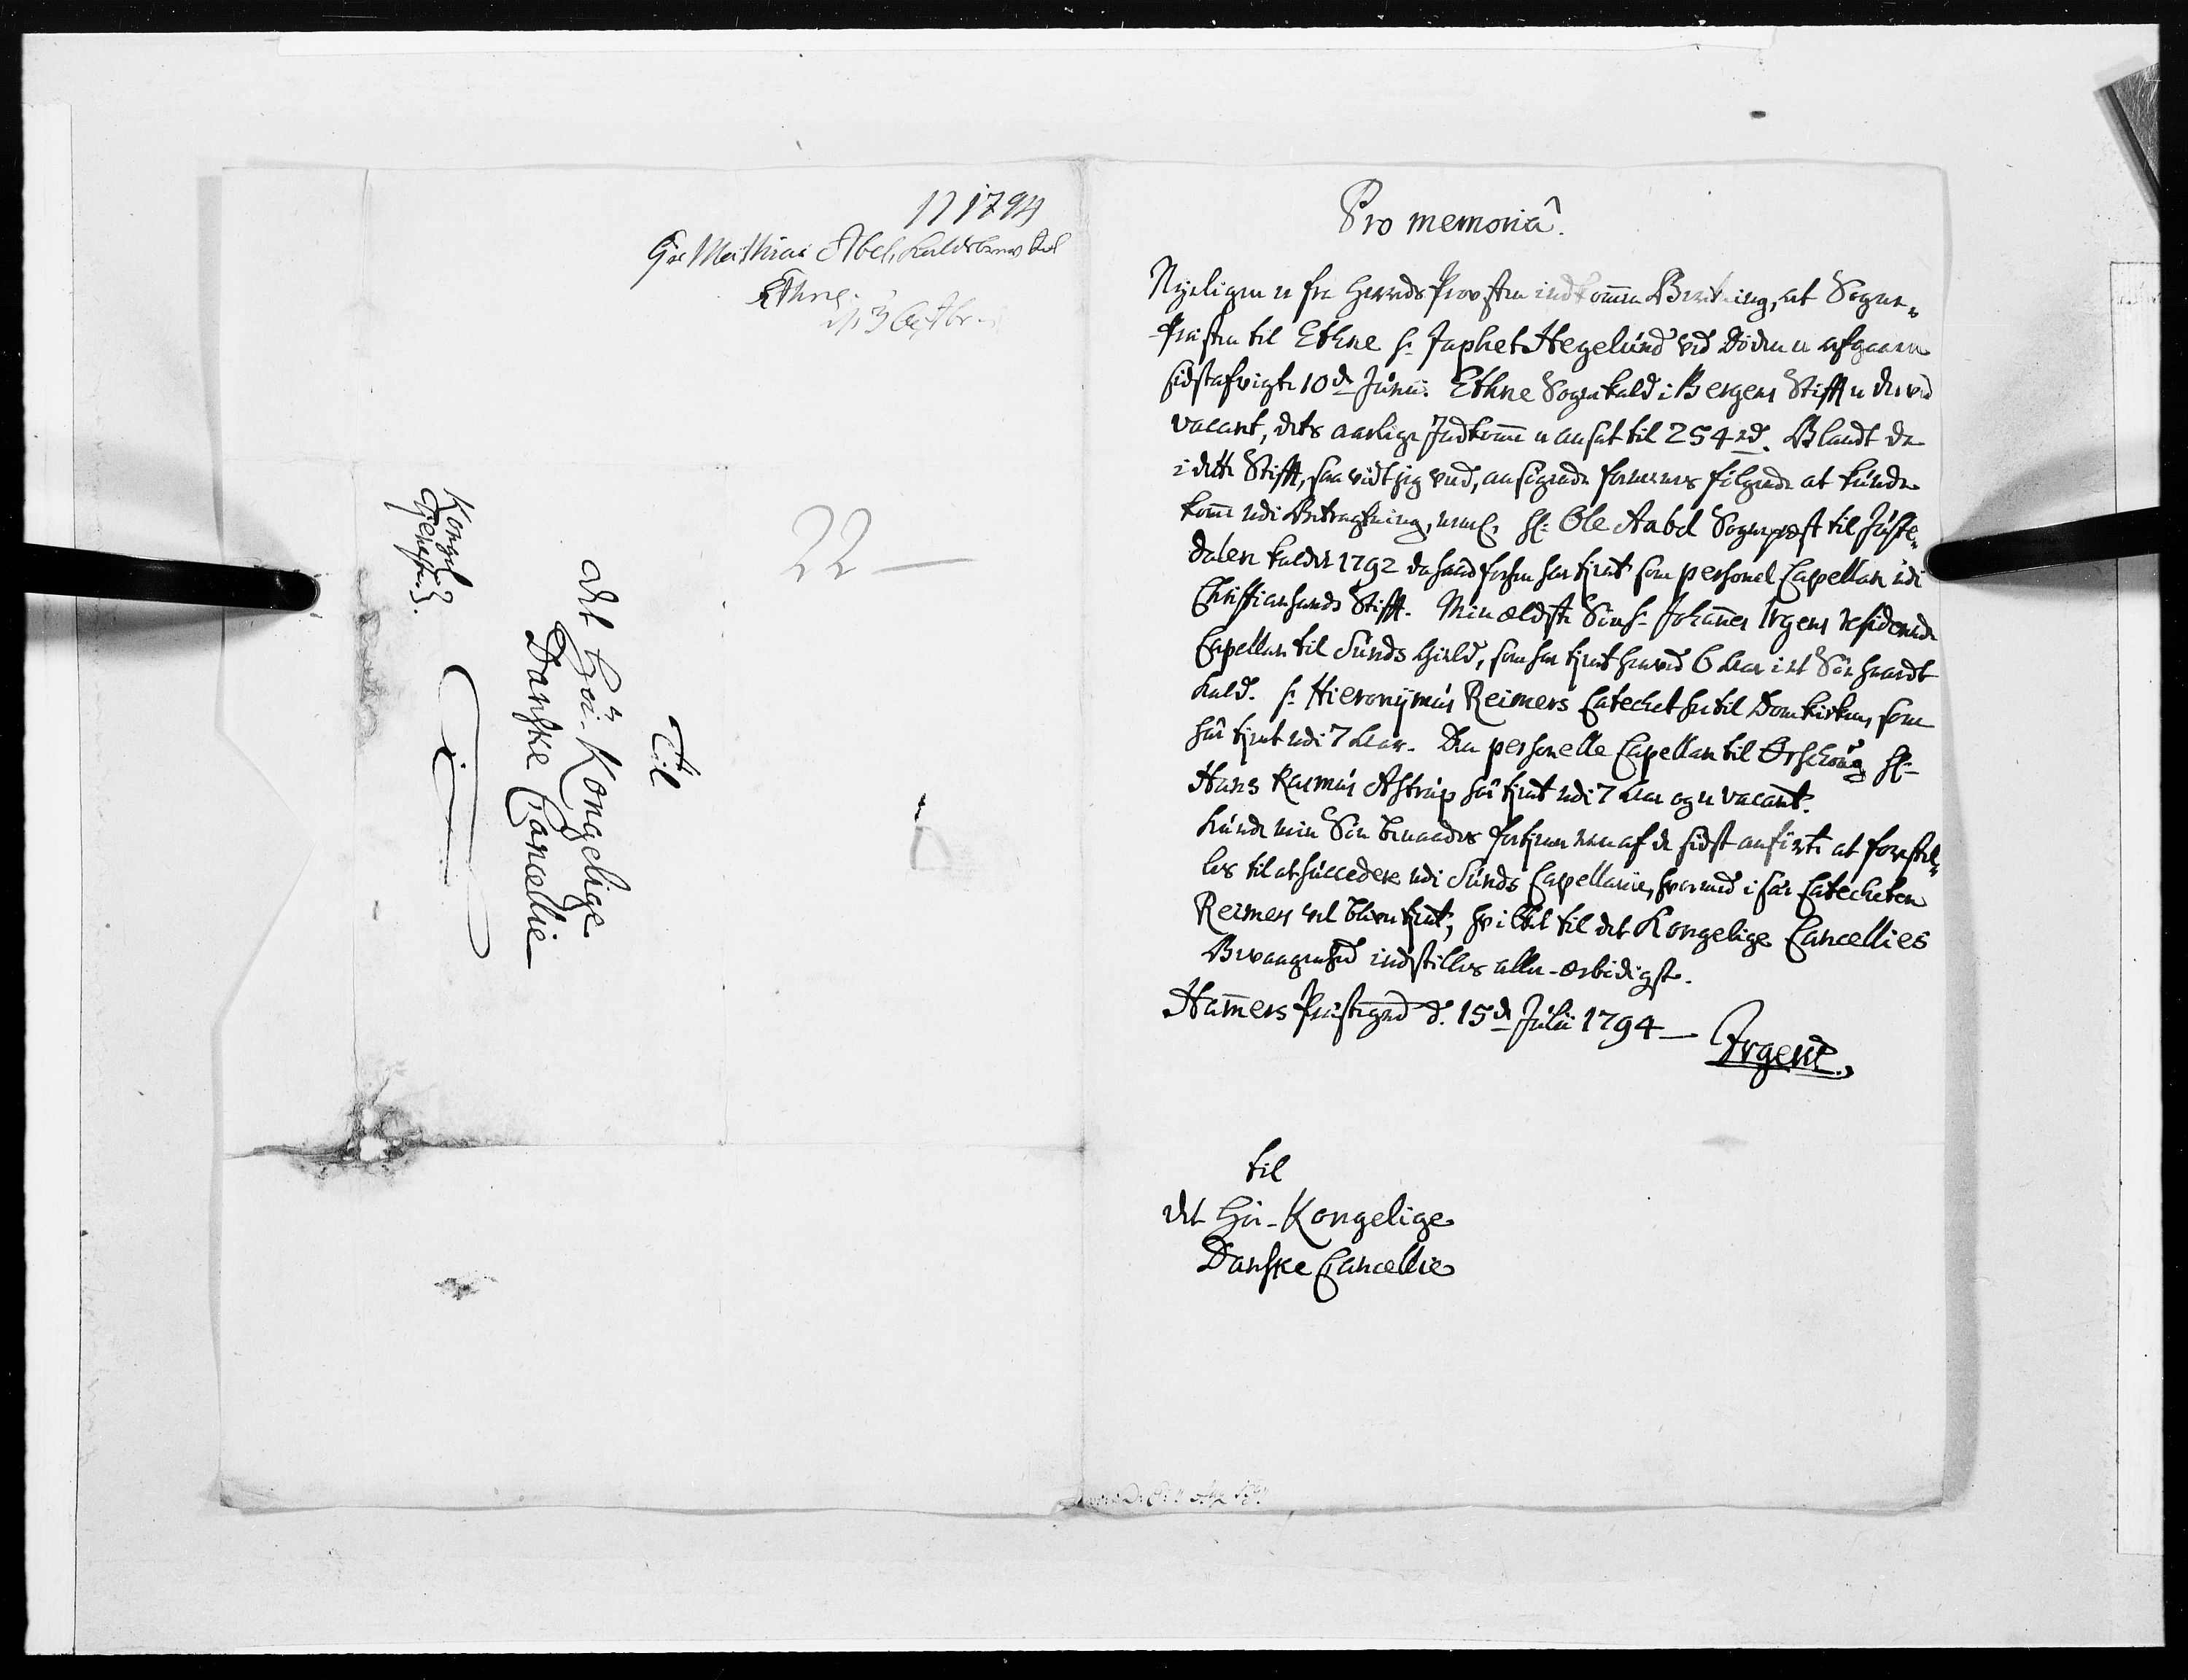 1794
Mathias Abel
Ethne
3 Octbr
22
Til
det Høi-Kongelige
Danske Cancellie
Kongel:
Pro memoria.
Nyeligen er fra Herreds Provsten indkommen Beretning, at Sogne-
Præsten til Ethne Hr Japhet Hegelund ved Døden er afgaaen
sidstafvigte 10de Junii. Ethne Sognekald i Bergens Stift er derved
vacant, dets aarlige Indkomme er ansat til 254 rd. Blandt de
i dette Stift, saa vidt jeg veed, ansøgende formeenes følgende at kunde
komme udi Betragtning, nemlig Hr: Ole Aabel Sognepræst til Juste-
dalen kaldet 1792 da hand forhen har tjent som personel Capellan udi
Christiansands Stift. Min ældste Søn Hr Johannes Irgens residerende
Capellan til Sunds Gield, som har tjent henved 6 Aar i et Søe haardt
Kald. Hr Hieronÿmus Reimers Catechet her til Domkirken, som
har tjent udi 7 Aar. Den personelle Capellan til Orschoug Hr:
Hans Rasmus Astrup har tjent udi 7 Aar og er vacant.
Kunde min Søn benaades fortjener een af de sidst anførte at forestil-
les til at succedere udi Sunds Capellanie, hvormed i sær Catecheten
Reimers vel bliver tjent, hvilket til det Kongelige Cancellies
Bevaagenhed indstilles aller-ærbødigst.
Hammers Præstegaard d. 15de Julii 1794
Irgens.
til
det Høi-Kongelige
Danske Cancellie